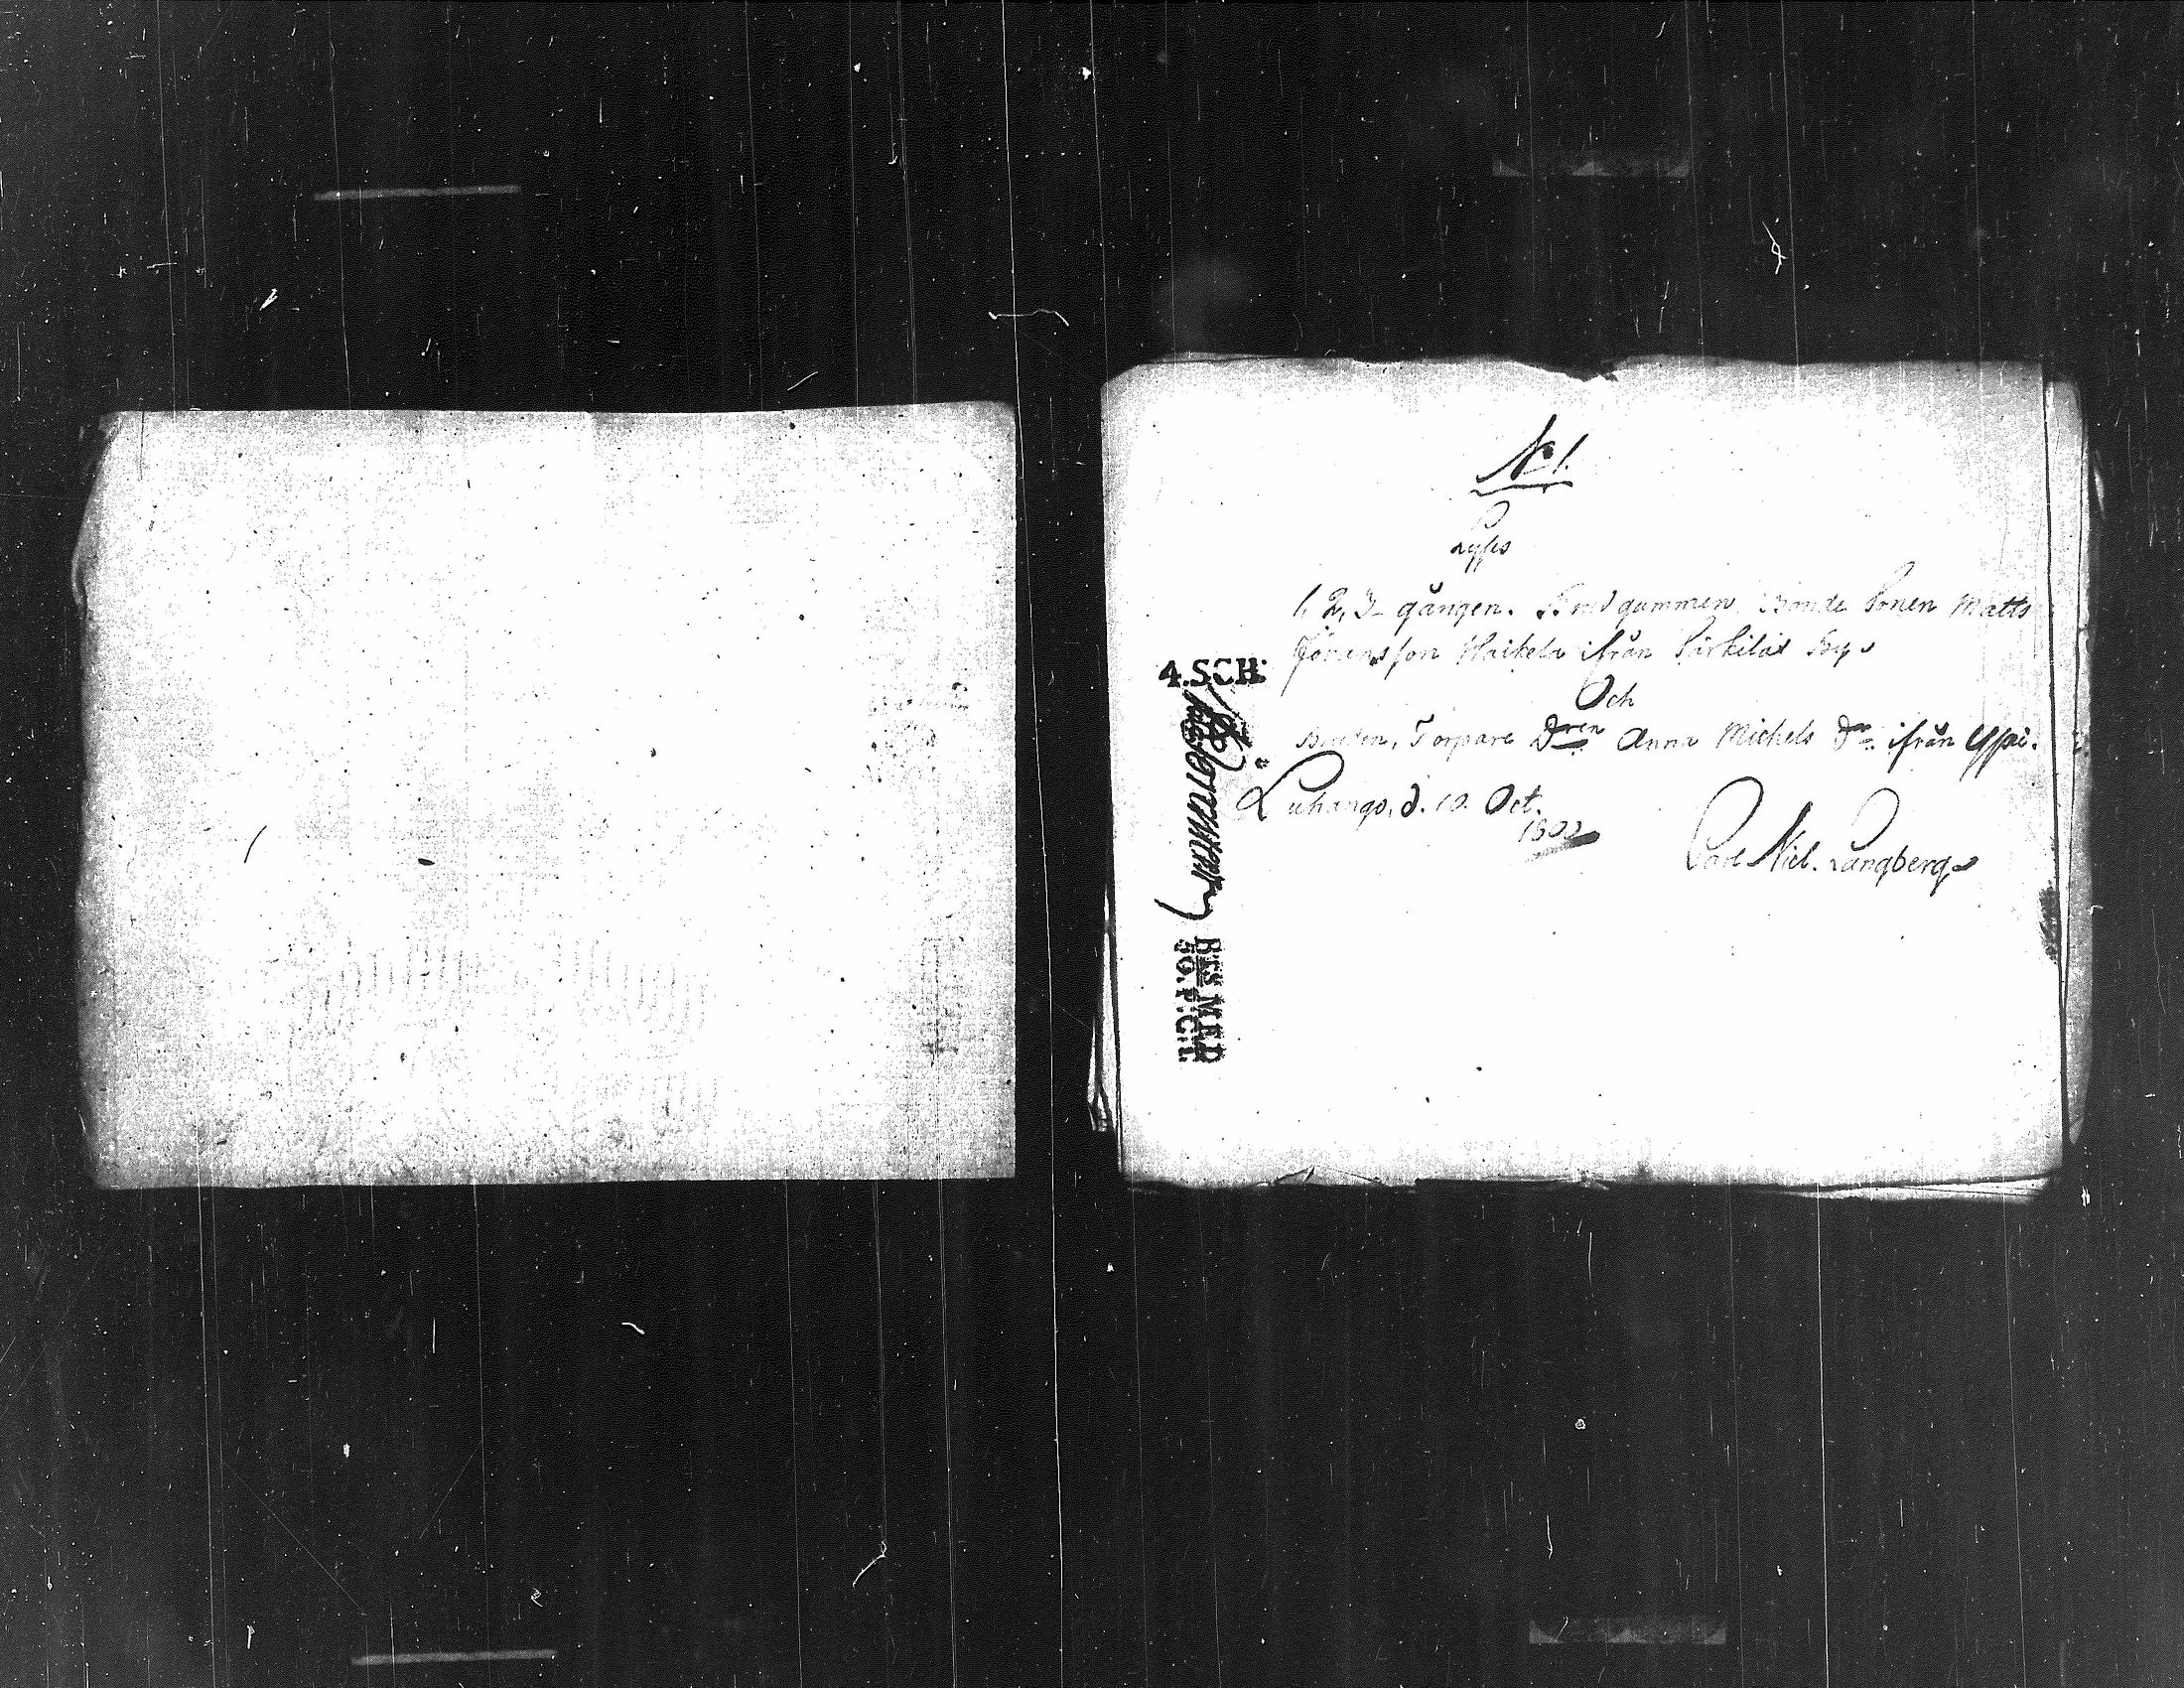 N 1.
Lyses
1, 2, 3 gången. Brudgummen Bonde Sonen Matts
Johansson Haikela ifrån Särkilax By
Och
Bruden, Torpare Dren Anna Michels Dr. ifrån Yspe.
Luhango, d. 10. Oct.
1802
Carl Nicl. Langberg
4.SCH:
BES MED
50.P:CT.